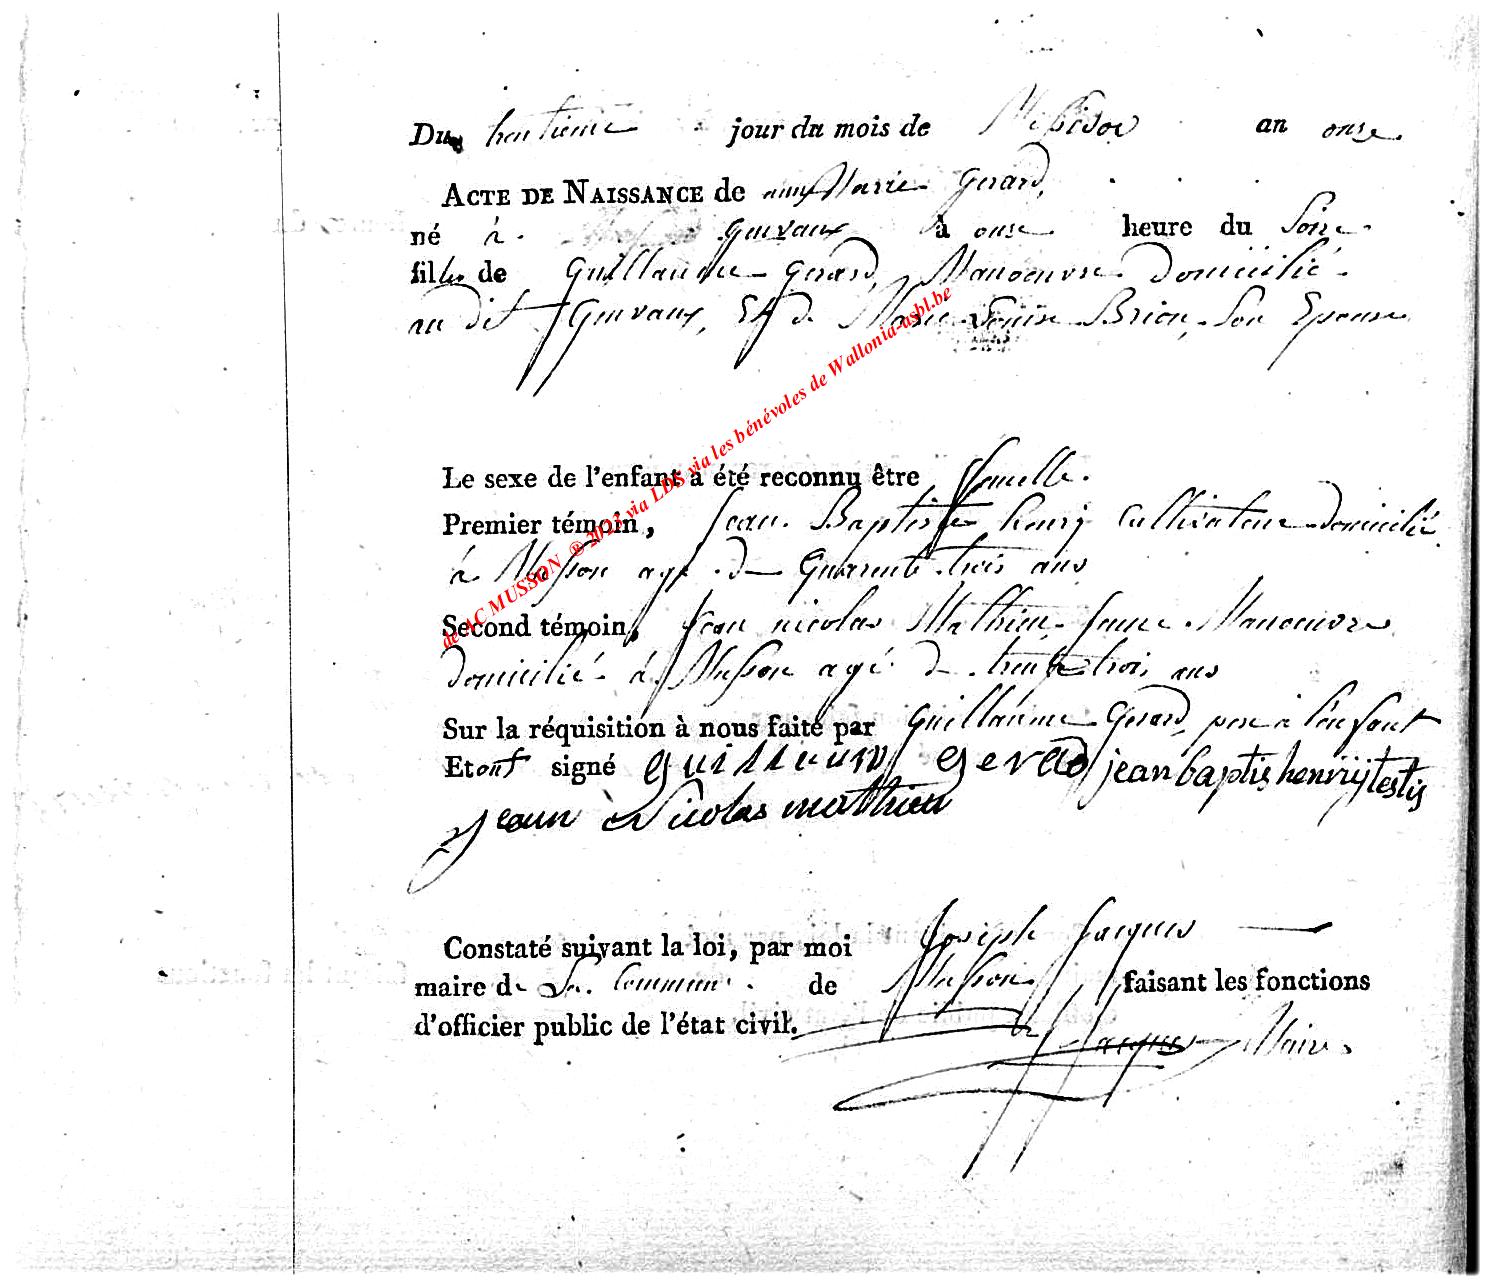 Du trentieme jour du mois de Messidor an onse
ACTE DE NAISSANCE de anne Marie Gerard,
né à Guevaux à onse heure du Soire
fille de Guillaume Gerard, Manoeuvre Domicilié
au dit Guevaux, Et de Marie Louise Brion, Son Epouse
Le sexe de l'enfant a été reconnu être femelle.
Premier témoin, Jean Baptiste henry Cultivateur domicilié
à Musson agé de Quarente trois ans
Second témoin, Jean nicolas Mathieu Jeune Manoeuvre
domicilié à Musson agé de trente trois ans
Sur la réquisition à nous faite par Guillaume Gerard, pere à l'enfant
Et ont signé guillaume gerard jean baptis henrij testis
jean Nicolas mathieu
Constaté suivant la loi, par moi Joseph Jacques
maire de La Commune de Musson faisant les fonctions
d'officier public de l'état civil. Jacques Maire
de AC MUSSON ® 2023 via LDS via les bénévoles de Wallonia-asbl.be